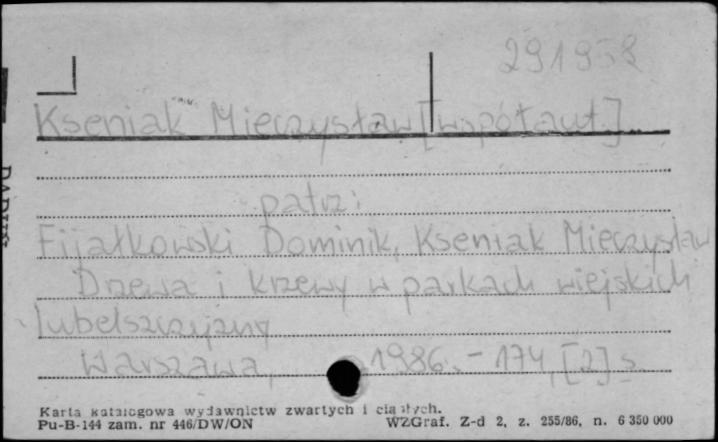 291958
Kseniak Mieczysław [współaut.]
patrz:
Fijałkowski Dominik, Kseniak Mieczysław
Drzewa i krzewy w parkach wiejskich
lubelszczyzny
Warszawa, 1986. - 174, [2] s
Karta katalogowa wydawnictw zwartych i ciągłych.
Pu-B-144 zam. nr 446/DW/ON WZGraf. Z-d 2, z. 255/86, n. 6 350 000